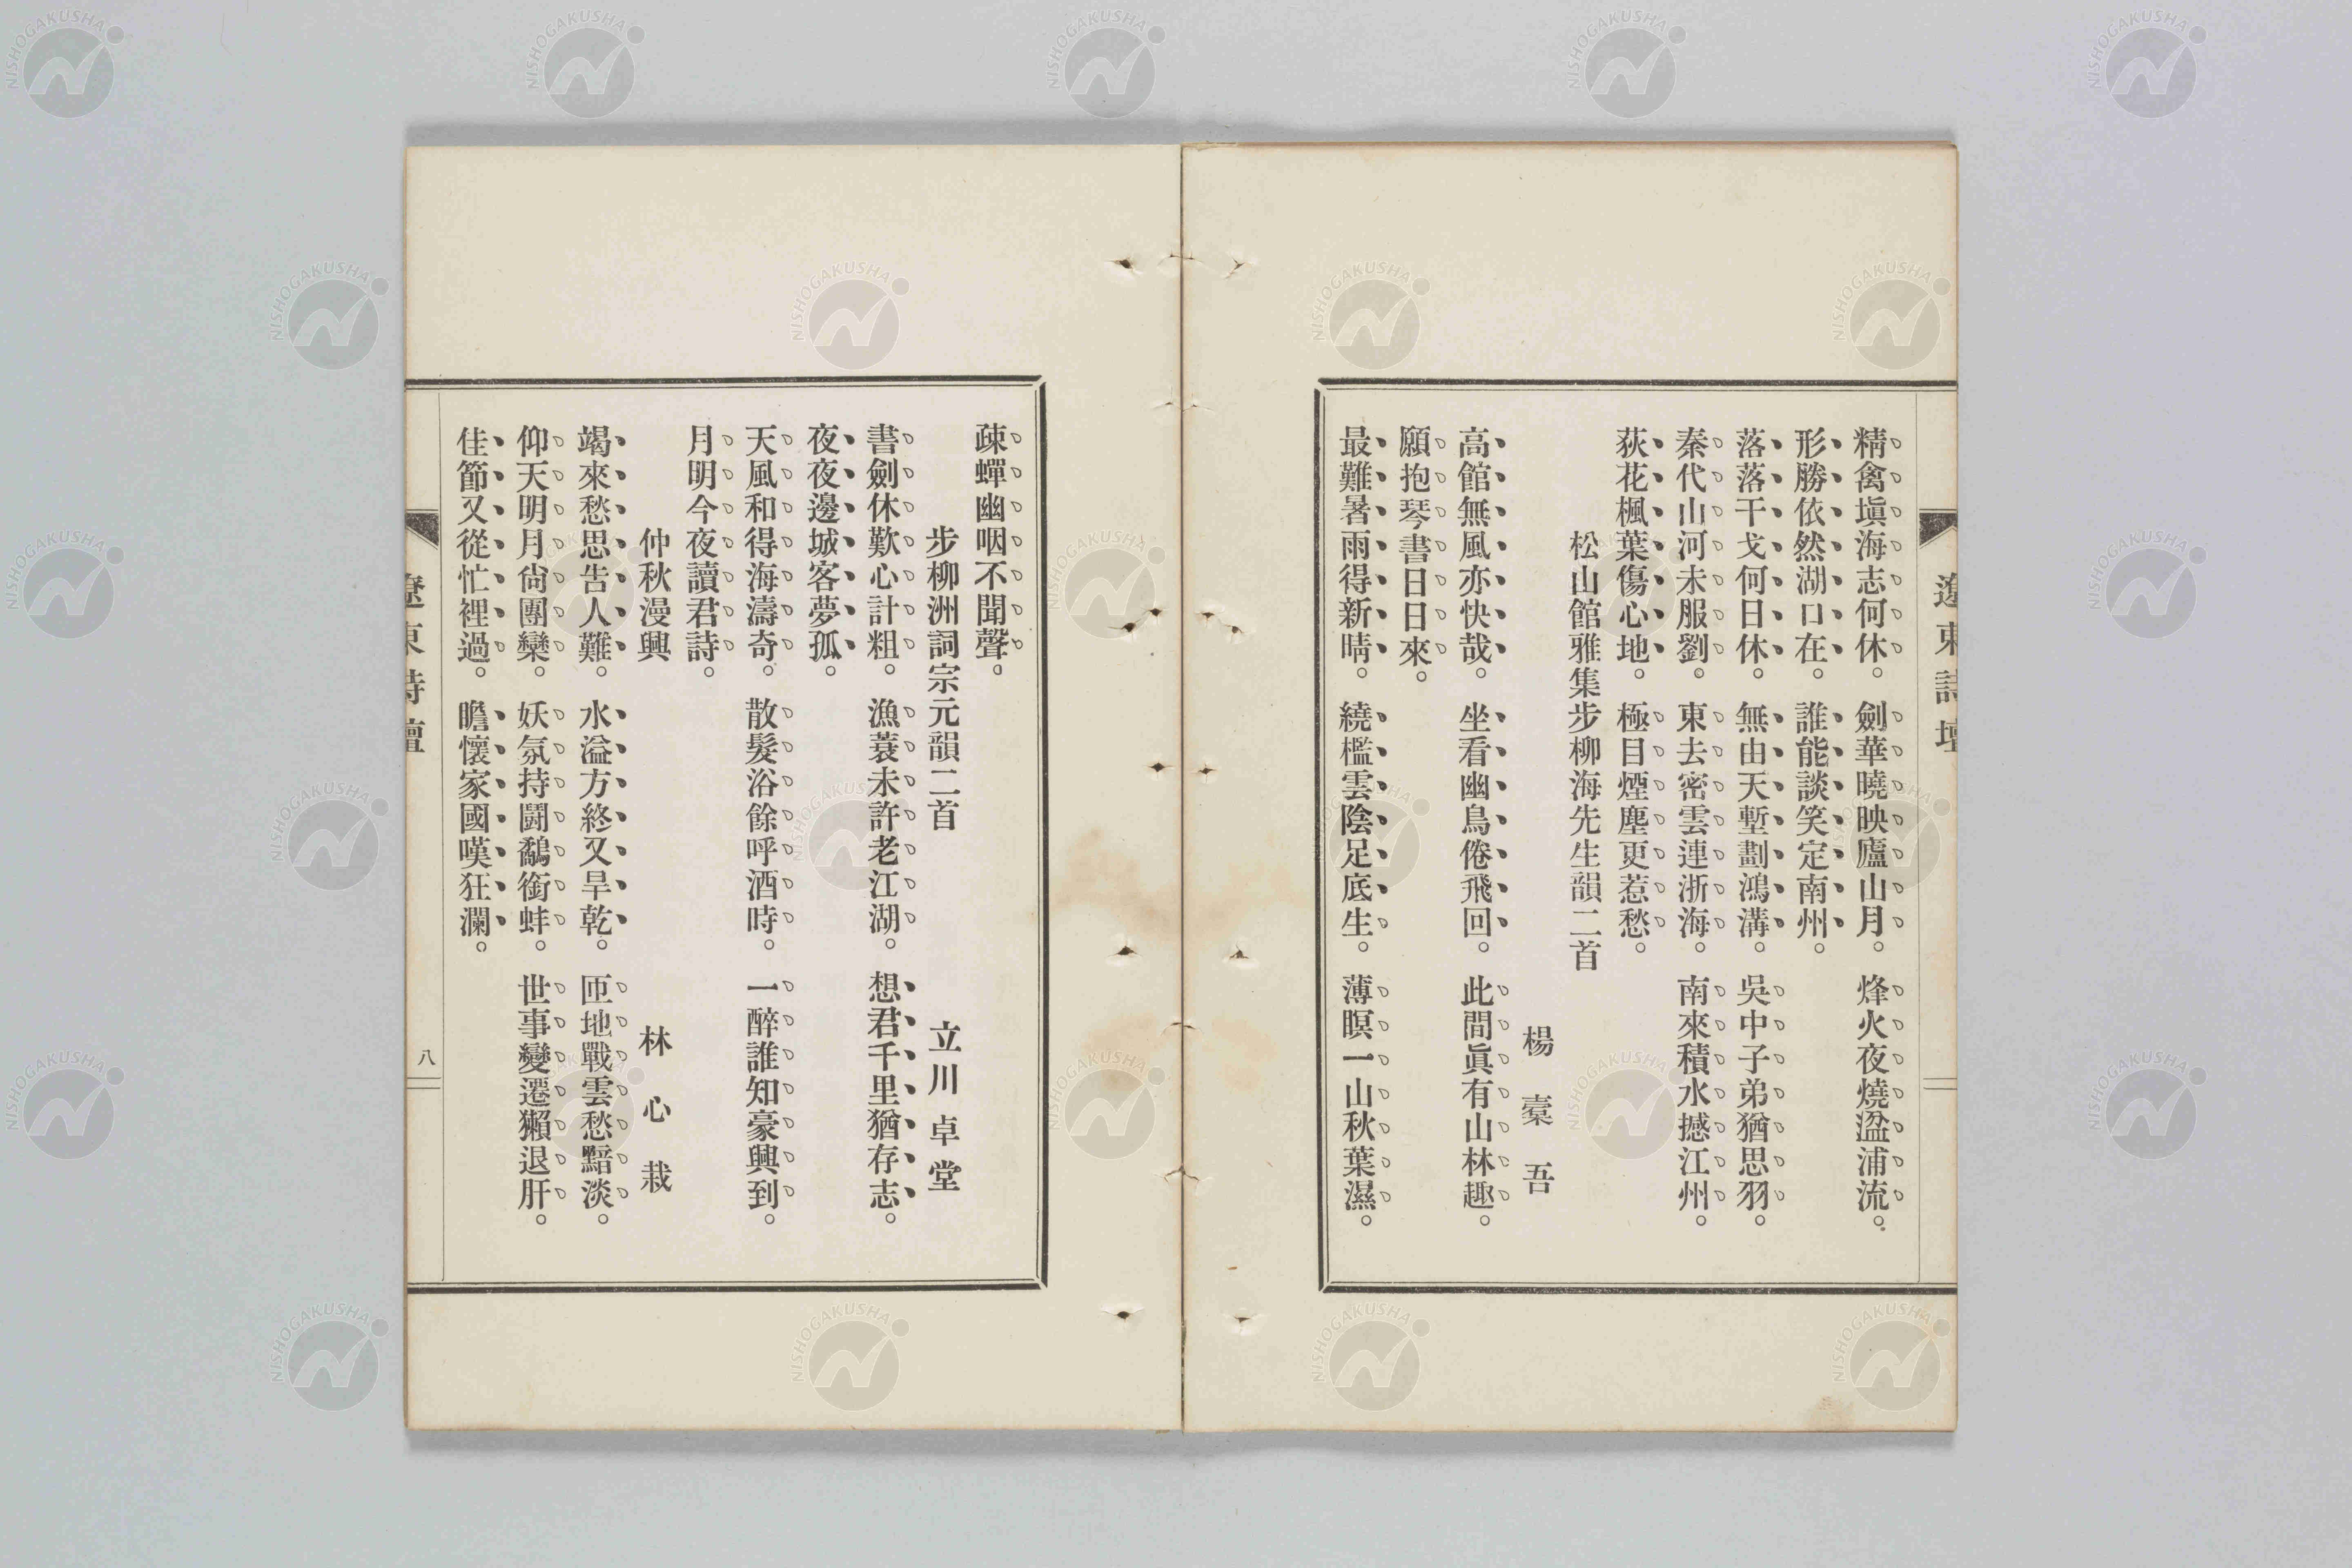 精禽塡海志何休。劍華曉映廬山月。烽火夜燒湓浦流。
形勝依然湖口在。誰能談笑定南州。
落落干戈何日休。無由天塹劃鴻溝。吳中子弟猶思羽。
秦代山河未服劉。東去密雲連浙海。南來積水撼江州。
荻花楓葉傷心地。極目煙塵更惹愁。
松山館雅集步柳海先生韻二首
楊槖吾
高館無風亦快哉。坐看幽鳥倦飛回。此間眞有山林趣。
願抱琴書日日來。
最難暑雨得新晴。繞檻雲陰足底生。薄暝一山秋葉濕。
遼東詩壇
疎蟬幽咽不聞聲。
步柳洲詞宗元韻二首
立川卓堂
書劍休歎心計粗。漁蓑未許老江湖。想君千里猶存志。
夜夜邊城客夢孤。
天風和得海濤奇。散髮浴餘呼酒時。一醉誰知豪興到。
月明今夜讀君詩。
仲秋漫興
林心栽
朅來愁思告人難。水溢方終又旱乾。匝地戰雲愁黯淡。
仰天明月尙團欒。妖氛持鬪鷸銜蚌。世事變遷獺退肝。
佳節又從忙裡過。瞻懷家國嘆狂瀾。
遼東詩壇
八
NISHOGAKUSHA